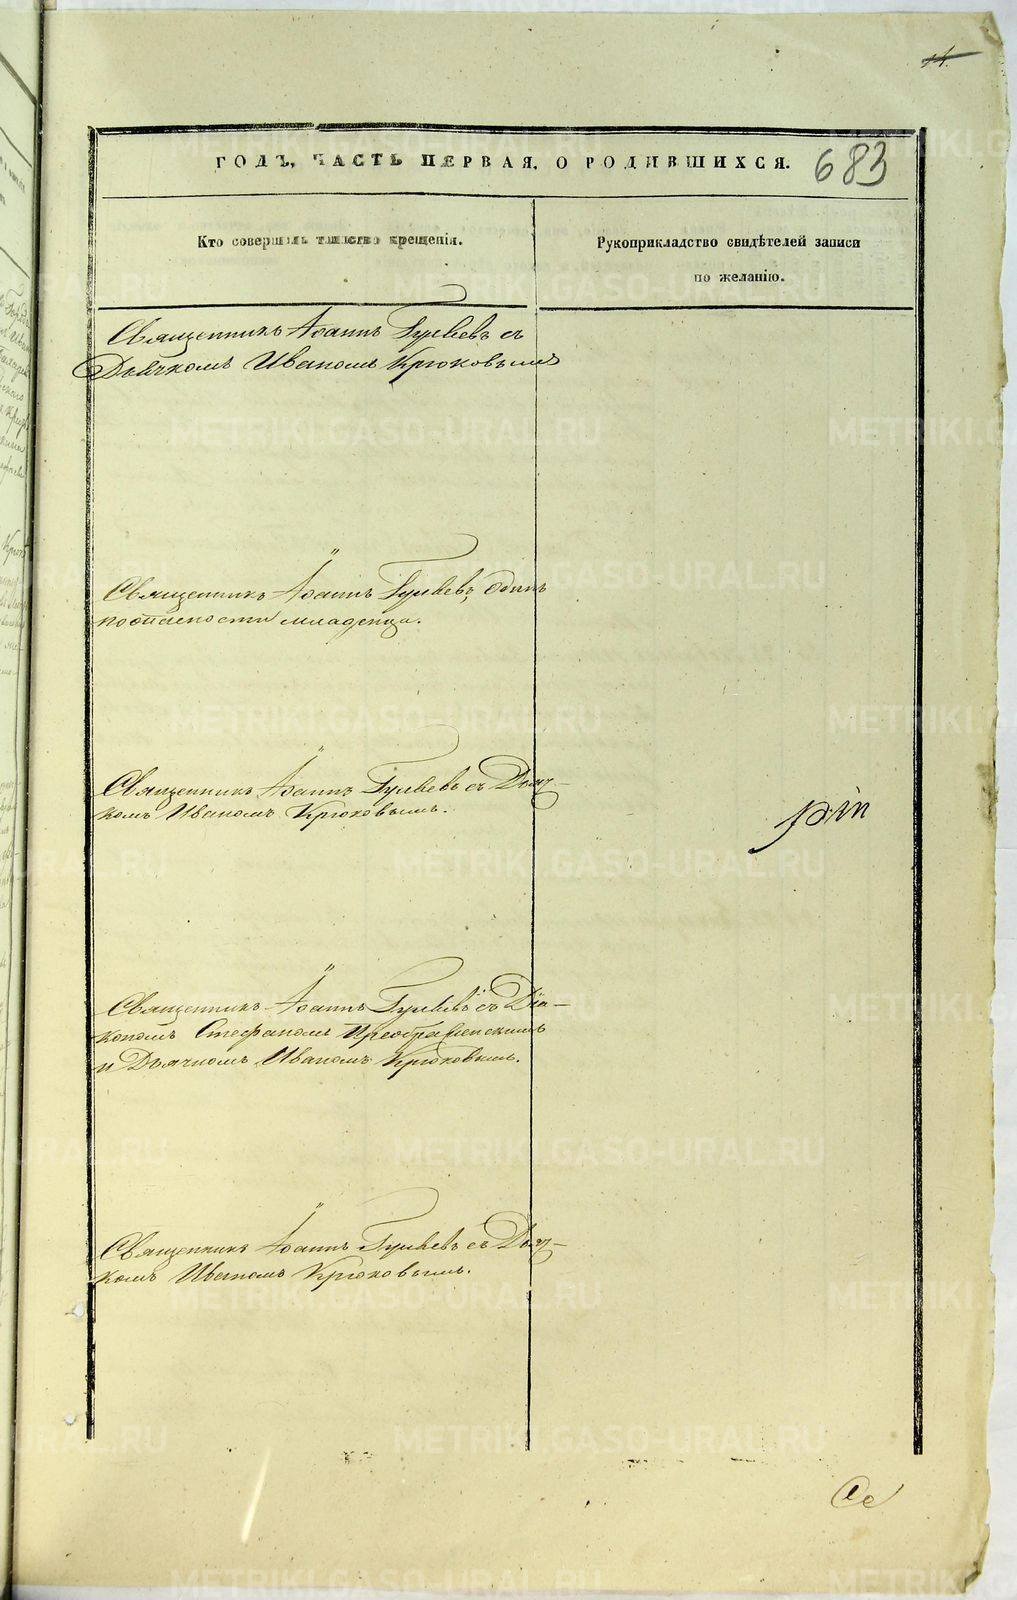 14.
ГОДЪ, ЧАСТЬ ПЕРВАЯ, О РОДИВШИХСЯ. 683
Кто совершилъ таинство крещенія.
Рукоприкладство свидѣтелей записи
по желанію.
Священникъ Іоаннъ Гуляевъ съ
Дьячкомъ Иваномъ Крюковымъ
Священникъ Іоаннъ Гуляевъ, одинъ
поопасности младенца.
Священникъ Іоаннъ Гуляевъ съ Дьяч-
комъ Иваномъ Крюковымъ.
Священникъ Іоаннъ Гуляевъ съ Діа-
кономъ Стефаномъ Преображенскимъ
и Дьячкомъ Иваномъ Крюковымъ.
Священникъ Іоаннъ Гуляевъ съ Дьяч-
комъ Иваномъ Крюковымъ.
Се
METRIKI.GASO-URAL.RU